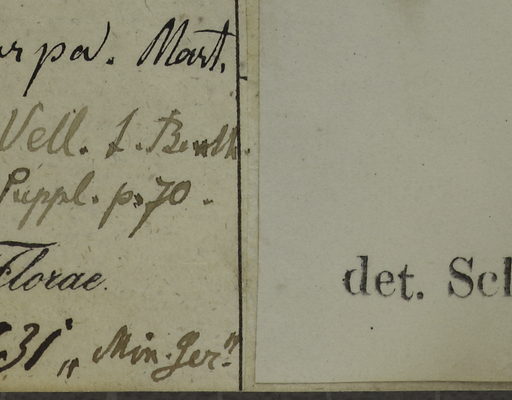 rpa. Mart.
Vell. f. Benth.
Suppl. p. 70.
Florae.
31 „Min. Ger."
det. Sch